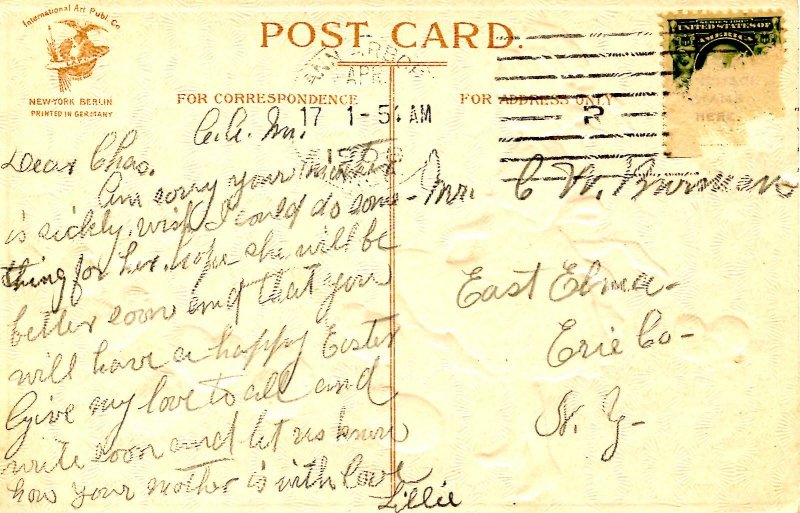 International Art Publ. Co
NEW-YORK BERLIN
PRINTED IN GERMANY
POST CARD.
ANN ARBOR
APR
17 1-5 AM
SERIES 1902
UNITED STATES OF
AMERICA
HERE.
FOR CORRESPONDENCE
FOR ADDRESS ONLY
Dear Chas.
Am sorry your mother
is sickly, wish I could do some-
thing for her. hope she will be
better soon and that you
will have a happy Easter
Give my love to all and
write soon and let us know
how your mother is with love
Lillie
Mr. C W.
East Elma-
Erie Co-
N. Y-